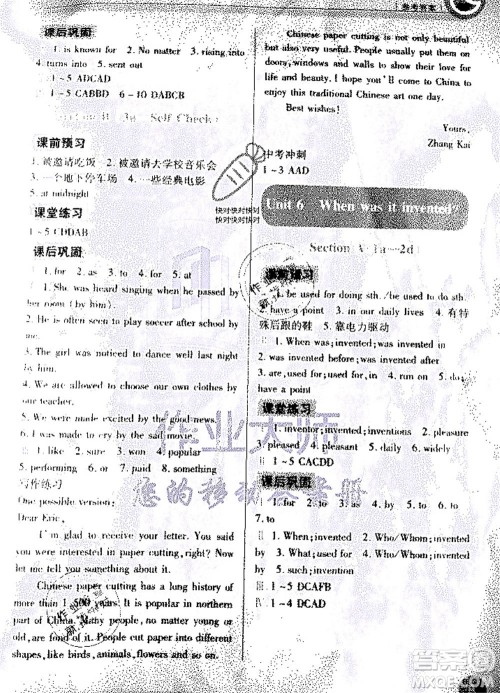 参考答案
课后巩固
Ⅰ 1. is known for 2. no more 3. rising into
4. turns into 5. sent out
Ⅱ 1~5 ADCAD
Ⅲ 1~5 CABBD 6~10 DABCB
Section B 3a~Self Check
课前预习
1. 被邀请吃饭 2. 被邀请大学校音乐会
3. 一个地下停车场 4. 一些经典电影
5. at midnight
课堂练习
1~5 CDDAB
课后巩固
Ⅰ 1. for 2. as 3. to 4. for 5. at
Ⅱ 1. She was heard singing when he passed by
her room (by him).
2. He is often seen to play soccer after school by
me.
3. The girl was noticed to dance last night.
4. We are made to choose our own clothes by
our teacher.
5. We were made excited by the good news.
6. I was made to cry by the sad movie.
Ⅲ 1. like 2. sure 3. among 4. popular
5. performing 6. or 7. paid 8. something
写作练习
One possible version:
Dear Eric,
I'm glad to receive your letter. You said
you were interested in paper cutting, right? Now
let me tell you something about it.
Chinese paper cutting has a long history of
more than 1 500 years. It is popular in northern
part of China. Many people, no matter young or
old, are fond of it. People cut paper into different
shapes like birds, animals, flowers and so on.
Chinese paper cutting is not only beautiful
but also very useful. People usually put them on
doors, windows and walls to show their love for
life and beauty. I hope you'll come to China to
enjoy this traditional Chinese art one day.
Best wishes!
Yours,
Zhang Kai
中考冲刺
1~3 AAD
Unit 6 When was it invented?
Section A 1a~2d
课前预习
Ⅰ 1. be used for doing sth./be used to do sth.
2. have a point 3. in our daily lives 4. 有特
殊后跟的鞋 5. 靠电力驱动
Ⅱ 1. When was; invented; was invented in
2. was invented before; was invented after
3. are, used for; used for 4. in 5. run on
6. do; have a point
课堂练习
Ⅰ 1. inventor; invented; inventions 2. pleasure
3. pleased 4. pleasant 5. daily 6. widely
Ⅱ 1~5 CACDD
课后巩固
Ⅰ 1. for 2. to 3. as 4. by 5. on 6. with
7. to
Ⅱ 1. When; invented 2. Who/Whom; invented
by 3. What; used for 4. Who/Whom; invented
by 5. such; invention
Ⅲ 1~5 DCAFB
Ⅳ 1~4 DCAD
快对快对快对
快对快对快对
作业大师
您的移动答案册
答案圈